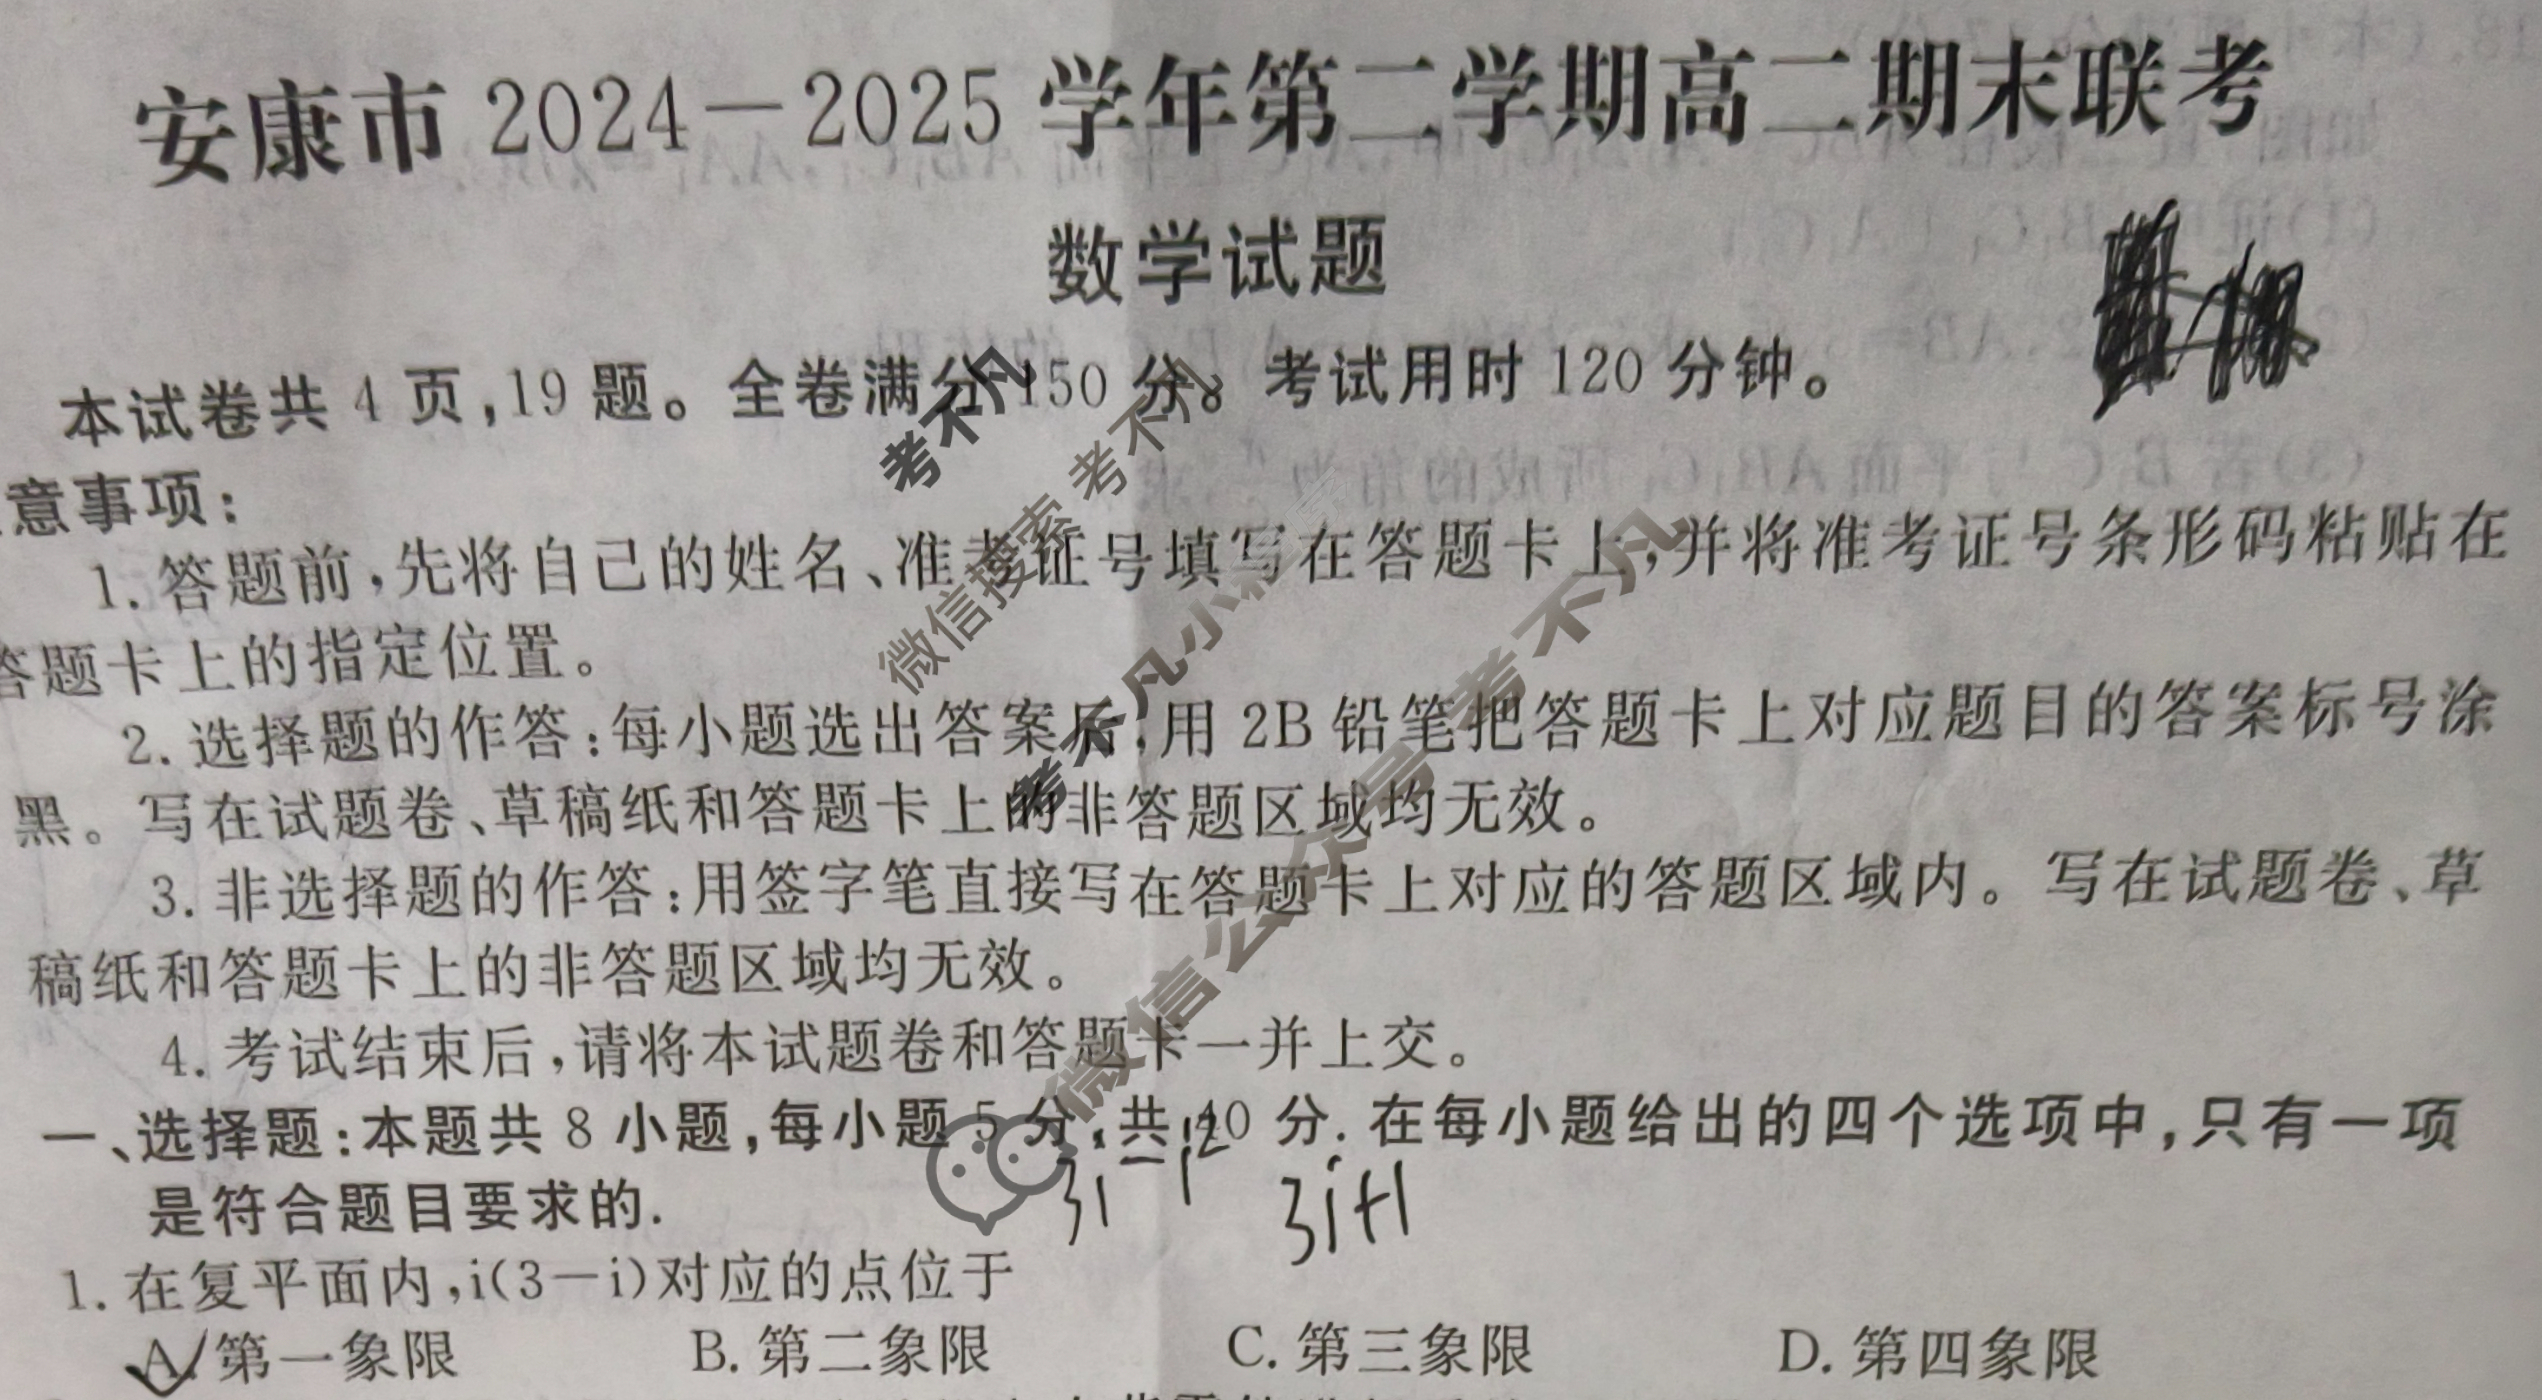 安康市2024－2025学年第二学期高二期末联考
数学试题
本试卷共4页,19题。全卷满分150分。考试用时120分钟。
意事项:
1.答题前,先将自己的姓名、准考证号填写在答题卡上,并将准考证号条形码粘贴在
答题卡上的指定位置。
2.选择题的作答:每小题选出答案后,用2B铅笔把答题卡上对应题目的答案标号涂
黑。写在试题卷、草稿纸和答题卡上的非答题区域均无效。
3.非选择题的作答:用签字笔直接写在答题卡上对应的答题区域内。写在试题卷、草
稿纸和答题卡上的非答题区域均无效。
4.考试结束后,请将本试题卷和答题卡一并上交。
一、选择题:本题共8小题,每小题5分,共40分.在每小题给出的四个选项中,只有一项
是符合题目要求的.
3i－i²
3i+1
1.在复平面内,i(3－i)对应的点位于
A.第一象限 B.第二象限 C.第三象限 D.第四象限
考不凡
微信搜索 考不凡
考不凡小程序
微信公众号 考不凡